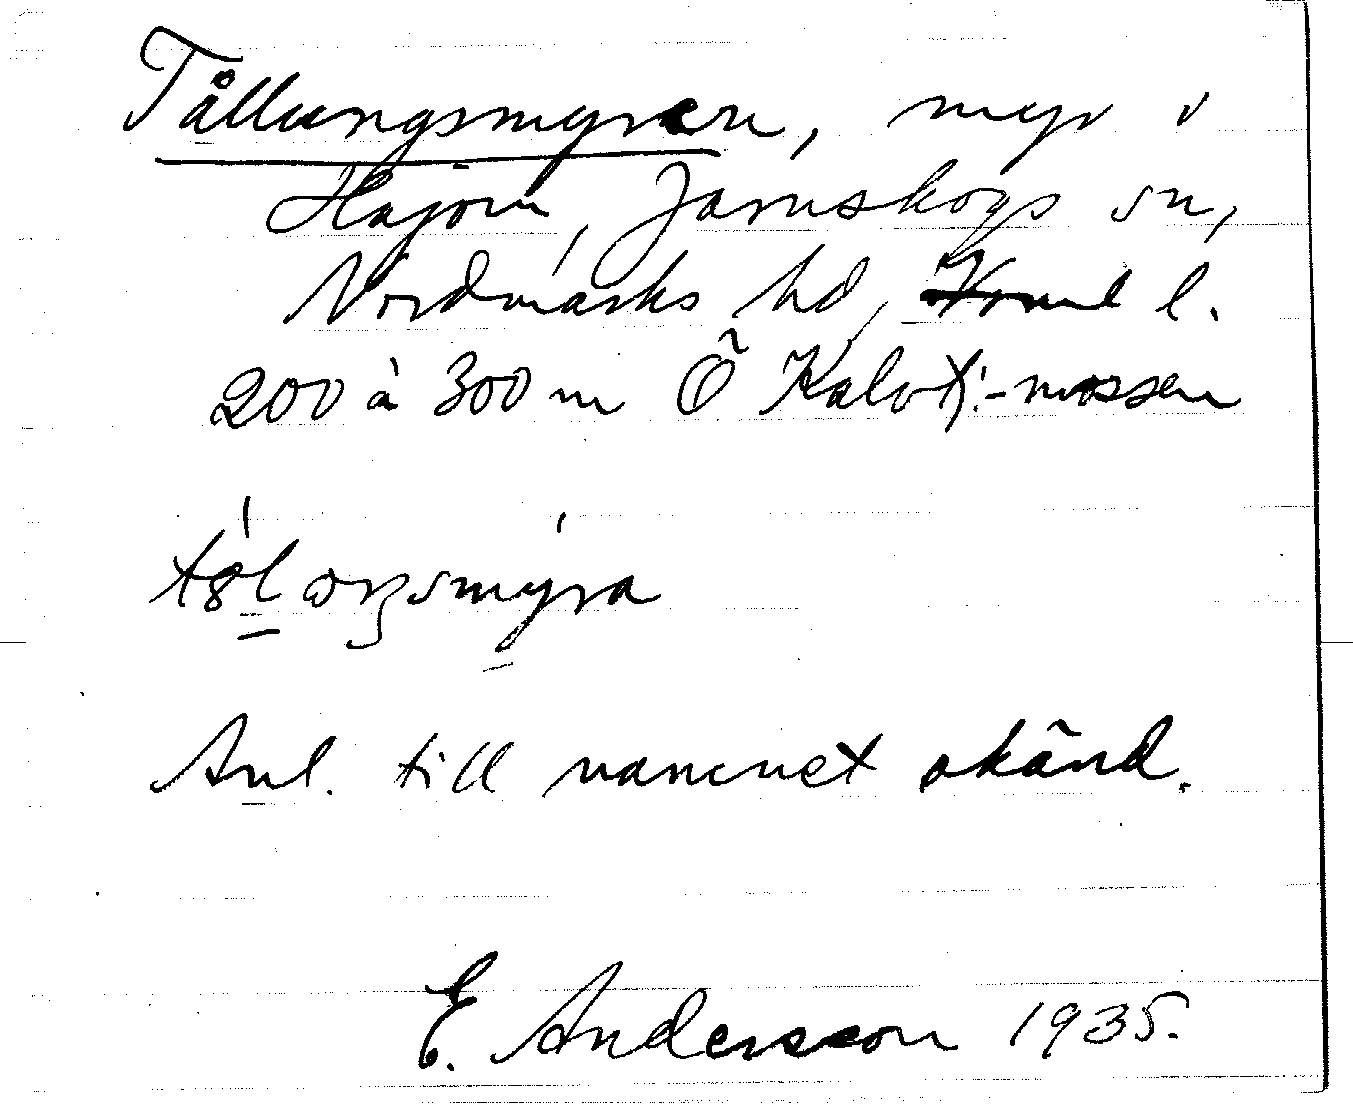 Tållungsmyren, myr i
Hajom, Järnskogs sn,
Nordmarks hd, Vrml l.
200 à 300 m Ö Kalvt:-mossen
Anl. till namnet okänd.
E. Andersson 1935.